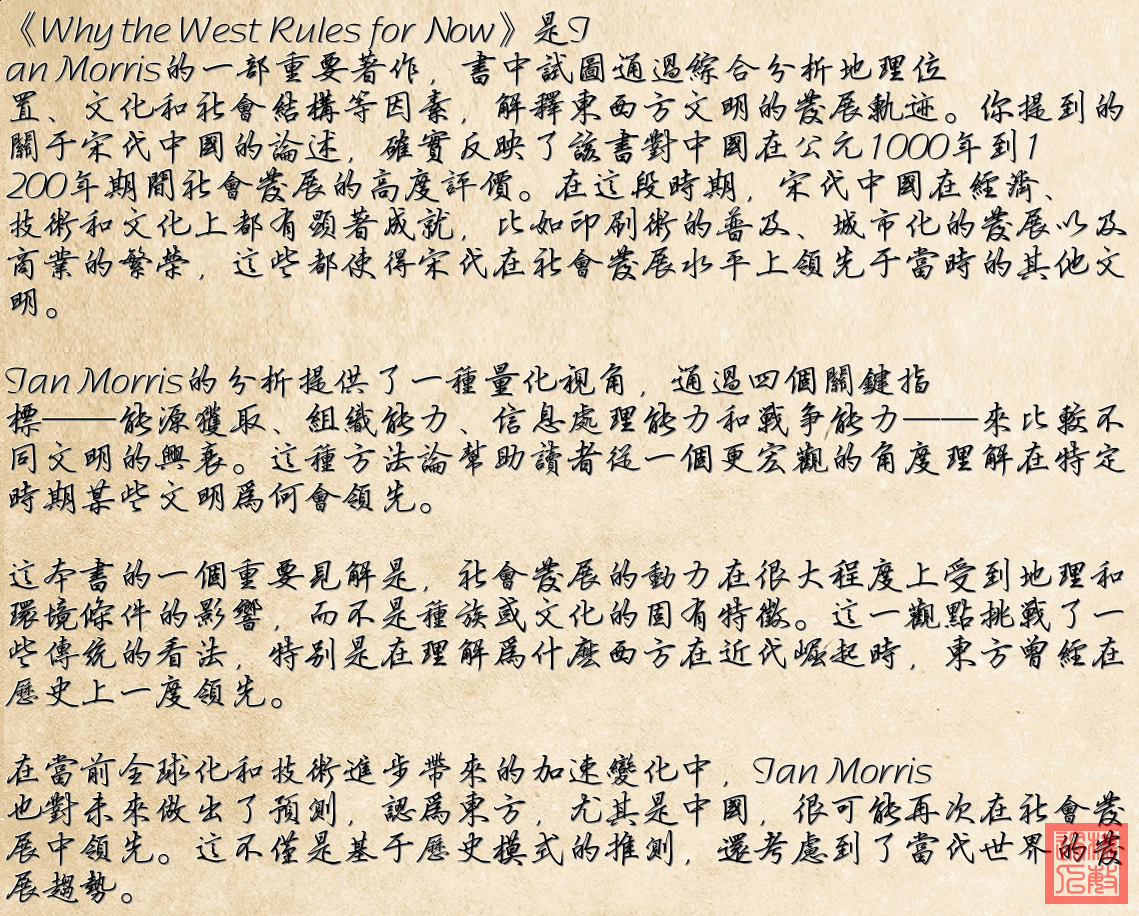 《Why the West Rules for Now》是I
an Morris的一部重要著作，書中試圖通過綜合分析地理位
置、文化和社會結構等因素，解釋東西方文明的發展軌迹。你提到的
關于宋代中國的論述，確實反映了該書對中國在公元1000年到1
200年期間社會發展的高度評價。在這段時期，宋代中國在經濟、
技術和文化上都有顯著成就，比如印刷術的普及、城市化的發展以及
商業的繁榮，這些都使得宋代在社會發展水平上領先于當時的其他文
明。
Ian Morris的分析提供了一種量化視角，通過四個關鍵指
標——能源獲取、組織能力、信息處理能力和戰爭能力——來比較不
同文明的興衰。這種方法論幫助讀者從一個更宏觀的角度理解在特定
時期某些文明爲何會領先。
這本書的一個重要見解是，社會發展的動力在很大程度上受到地理和
環境條件的影響，而不是種族或文化的固有特徵。這一觀點挑戰了一
些傳統的看法，特別是在理解爲什麽西方在近代崛起時，東方曾經在
歷史上一度領先。
在當前全球化和技術進步帶來的加速變化中，Ian Morris
也對未來做出了預測，認爲東方，尤其是中國，很可能再次在社會發
展中領先。這不僅是基于歷史模式的推測，還考慮到了當代世界的發
展趨勢。